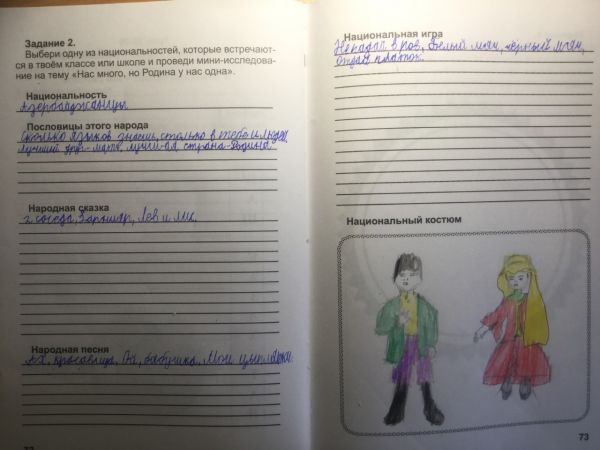 Задание 2.
Выбери одну из национальностей, которые встречают-
ся в твоём классе или школе и проведи мини-исследова-
ние на тему «Нас много, но Родина у нас одна».
Национальность
Азербайджанцы
Пословицы этого народа
Сколько языков знаешь, столько в тебе и людей.
Лучший друг-мать, лучшая, страна-Родина
Народная сказка
соседа, Лев и лис.
Народная песня
Ах, красавица. Ай, бабушка. Мои цыплятки.
Национальная игра
Не попади в ров, белый мяч, чёрный мяч,
отдай платок.
Национальный костюм
73